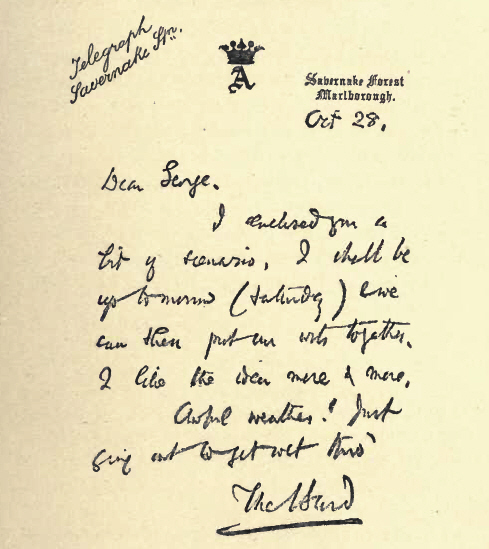 Telegraph
Savernake Stn.
A
Savernake Forest
Marlborough.
Oct 28.
Dear George.
I enclosed you a
bit of scenario, I shall be
up tomorrow (Saturday) & we
can then put our wits together.
I like the idea more & more.
Awful weather! Just
going out to get wet thro'